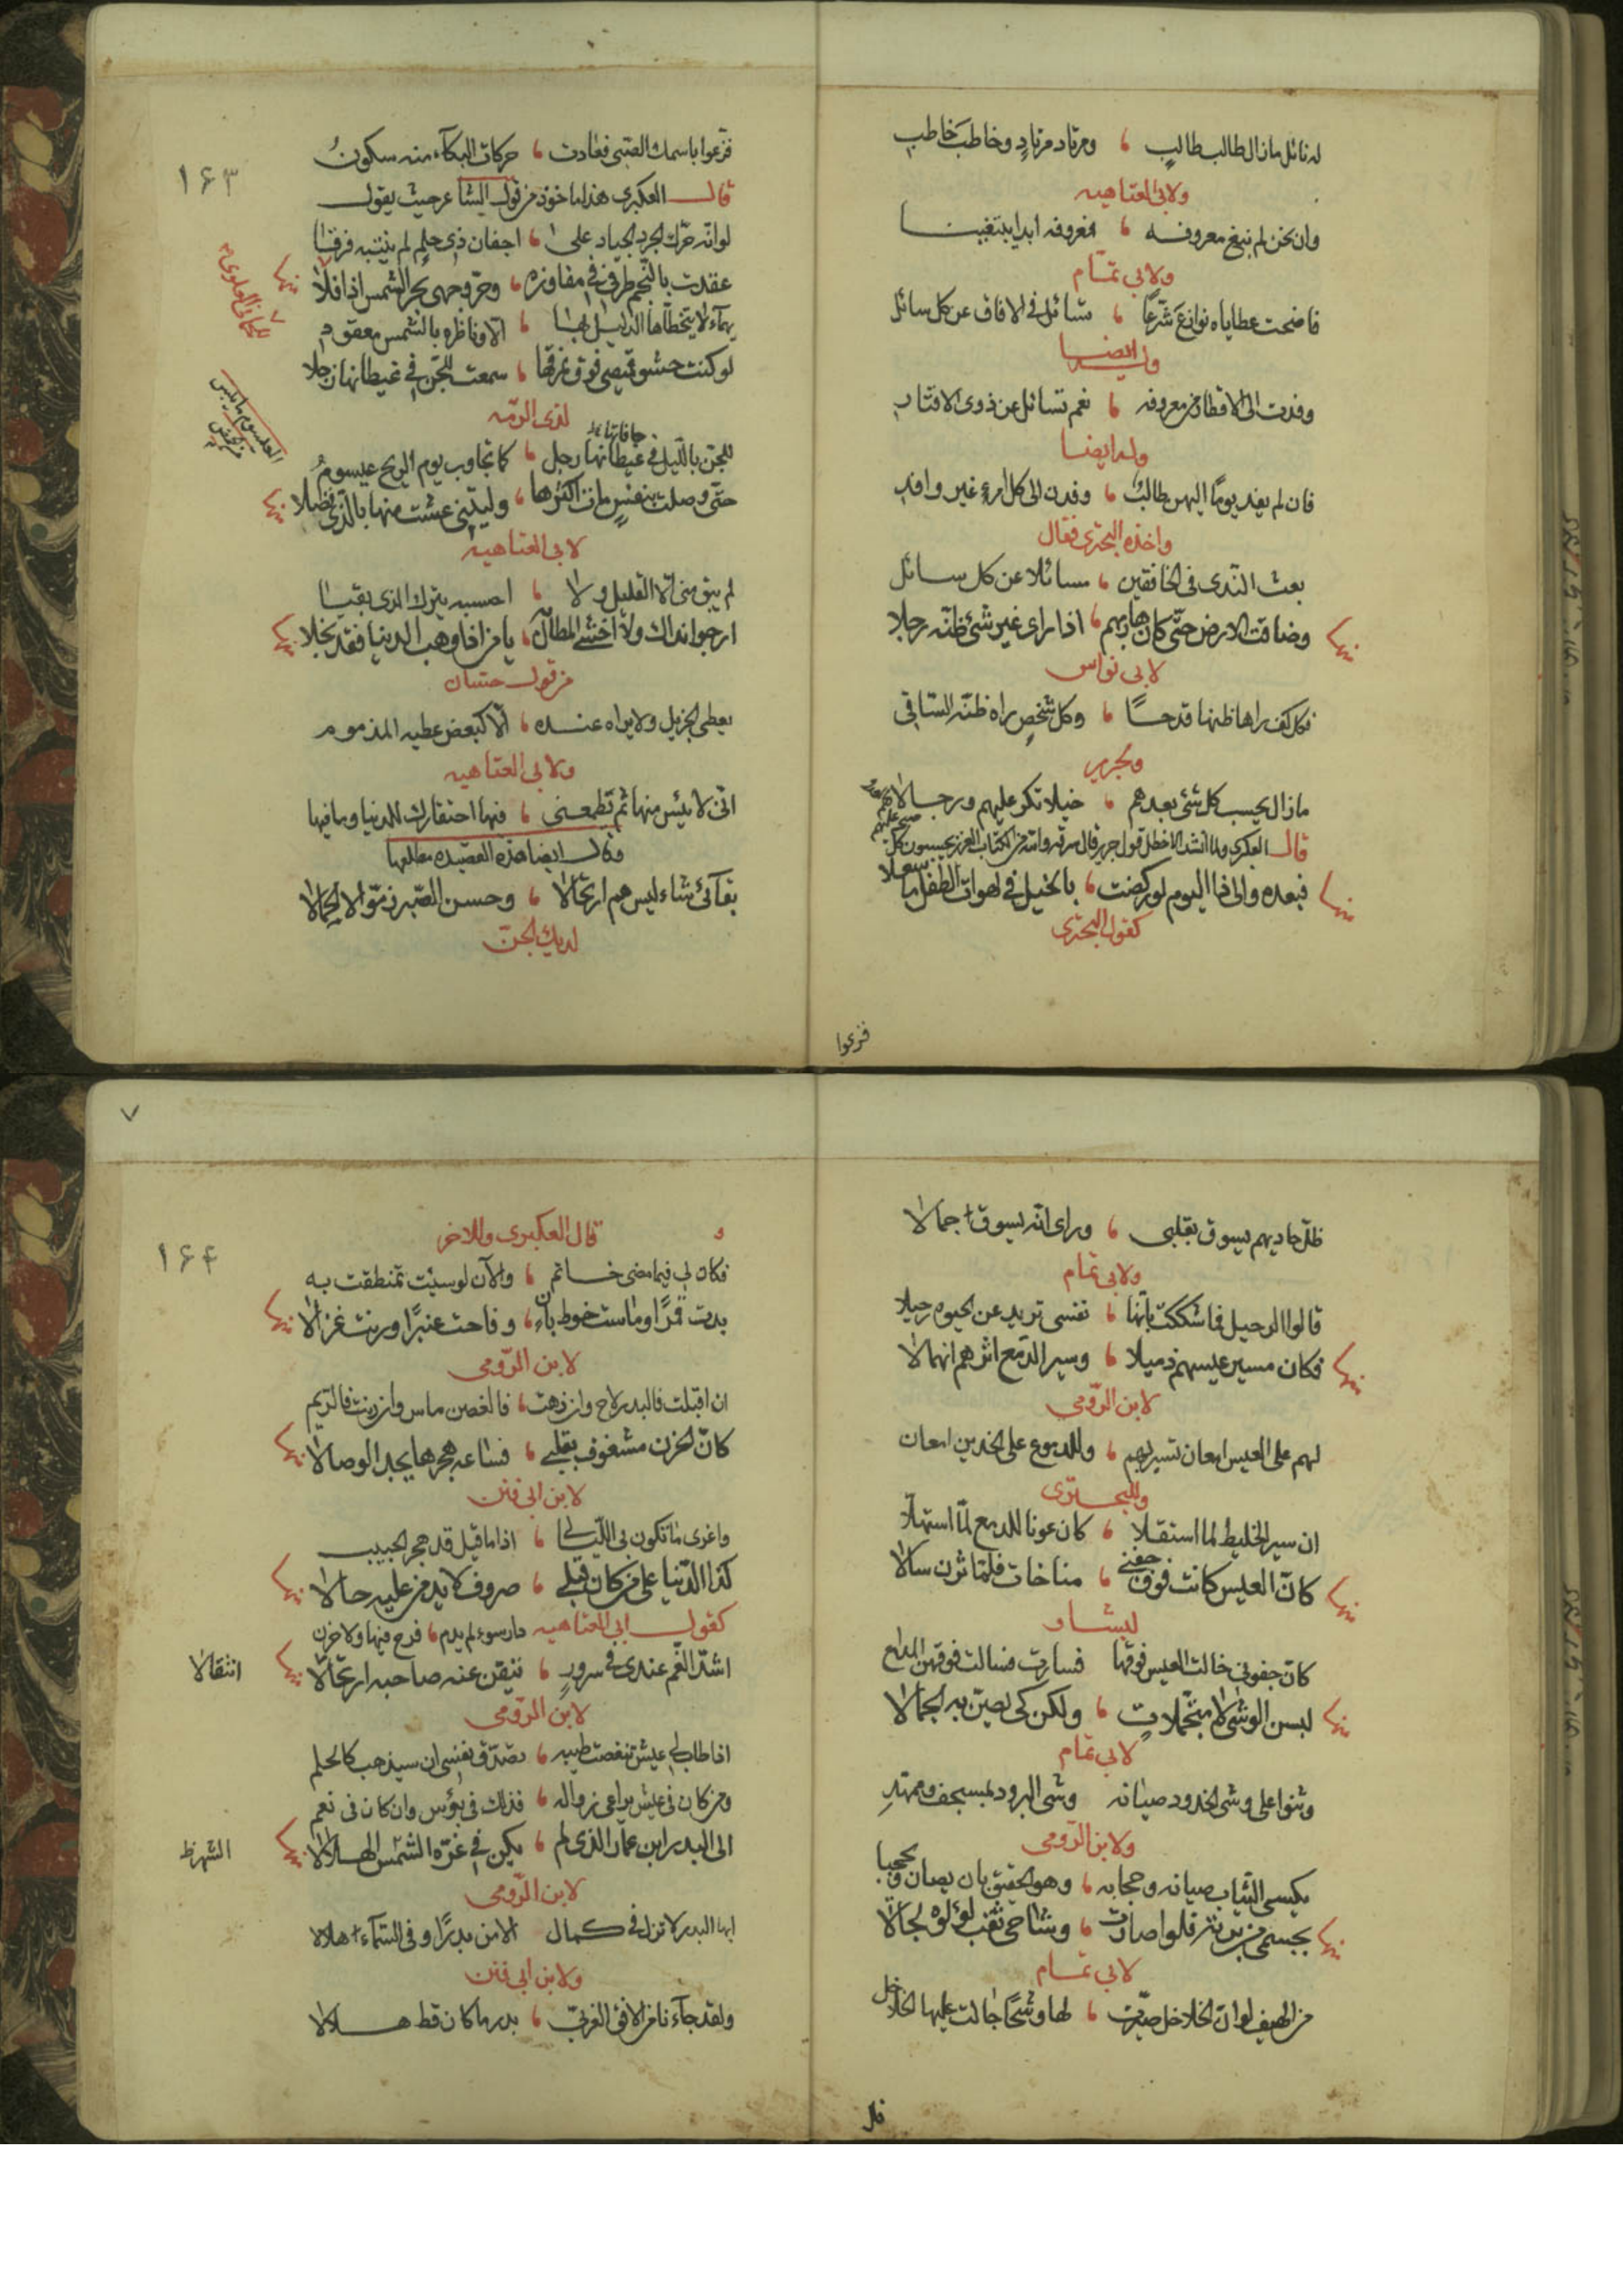 له نائل ما زال طالب طالب ، ومرتاد مرتاد وخاطب خاطب
ولابى العتاهيه
وان نحن لم نبغ معروفه ، فمعروفه ابدا يبتغينا
ولابي تمّام
فاضحت عطاياه نوازع شرّعًا ، تسائل فى الافاق عن كل سائل
وله ايضا
وفدت الى الاقطار من معروفه ، نعم تسائل عن ذوى الاقتار
وله ايضا
فان لم يفد يومًا اليهن طالبٌ ، وفدن الى كل امرئ غير وافد
واخذه البحترى فقال
بعث الندى فى الخافقين ، مسائلا عن كل سائل
وضاقت الارض حتّى كان هاربهم ، اذا راى غير شئ ظنّه رجلا
منها
لابى نواس
فكل كف راها ظنها قدحًا ، وكل شخص راه ظنّه الساقى
ولجرير
ما زال يحسب كل شئ بعدهم ، خيلا تكر عليهم ورجالا
قال العكبرى ولما انشد الاخطل قول جرير قال سرقه والله من الكتاب العزيز يحسبون كل صيحة عليهم
فبعده والى ذا اليوم لو ركضت ، بالخيل فى لهوات الطفل ما سعلا
منها
كقول البحترى
فزعوا
١٦٣
فزّعوا باسمك الصبى فعادت ، حركات البكآء منه سكونُ
قال العكبرى هذا ماخوذ من قول الشاعر حيث يقول
لو انّه حرّك الجرد الجياد على ، اجفان ذى حلم لم ينتبه فرقا
عقدت بالنّجم طرفى فى مفاوزه ، وحرّ وجهى بحر الشمس اذ افلا
منها
يهمآء لا يتخطّاها الدليل بها ، الا وناظره بالشمس معقود
لو كنت حشو قميصى فوق نمرقها ، سمعت للجن فى غيطانها زجلا
لذى الرمّه
للجنّ بالليل فى غيطانها زجل ، كما تجاوب يوم الريح عيسومُ
حافاتها
حتّى وصلت بنفسٍ مات اكثرها ، وليتنى عشت منها بالذى فضلا
منها
لابى العتاهيه
لم يبق منى الا القليل ولا ، احسبه يترك الذى بقيا
ارجو انداك ولا اخشى المطال به ، يا من اذا وهب الدنيا فقد بخلا
منها
من قول حسّان
يعطى الجزيل ولا يراه عنده ، الّا كبعض عطيه المذموم
ولابى العتاهيه
انّى لايئس منها ثم تطمعنى ، فيها احتقارك للدنيا وما فيها
وقال ايضا هذه القصيده مطلعها
بقآئى شاء ليس هم ارتحالا ، وحسن الصّبر زمّوا لا الجمالا
لديك الجنّ
٧
ظلّ حاديهم يسوق بقلبى ، وراى انّه يسوق جمالا
ولابى تمام
قالوا الرحيل فما شككت بانّها ، نفسى تريد عن الحيوه رحيلا
فكان مسير عيسهم ذميلا ، وسير الدمع اثرهم انهمالا
منها
لابن الرّومى
لهم على العيس امعان تسير بهم ، وللدموع على الخدين امعان
وللبحترى
ان سير الخليط لما استقلا ، كان عونا للدمع لمّا استهلّا
كانّ العيس كانت فوق جفنى ، مناخات فلمّا ثرن سالا
منها
لبشار
كانّ جفونى خالت العيس فوقها فسارت فسالت فوقهن المدامع
لبسن الوشى لا متجمّلاتٍ ، ولكن كى يصنّ به الجمالا
منها
لابى تمام
وثنوا على وشى الخدود صيانه وشى البرود بمسجف وممهّدِ
ولابن الرّومى
يكسى الثياب صيانه وحجابه ، وهو الحقيق بان يصان ويحجبا
بجسمى من برته فلو اصارت ، وشاحى ثقب لؤلؤه لجالا
منها
لابى تمام
من الهيف لو ان الخلاخل صيّرت ، لها وشحًا جالت عليها الخلاخل
١٦٤
قال العكبرى وللاخر
فكان لى فيما مضى خاتم ، والآن لو سئت تمنطقت به
بدت قمرًا وماست خوط بان ، وفاحت عنبرًا ورنت غزالا
منها
لابن الرّومى
ان اقبلت فالبدر لاح وان زهت ، فالغصن ماس وان رنت فالريم
كانّ الحزن مشغوف بقلبى ، فساعه هجرها يجد الوصالا
منها
لابن ابى فنن
واغرى ما تكون بى الليالى ، اذا ما قيل قد هجر الحبيب
كذا الدّنيا على من كان قبلى ، صروف لا يدمن عليه حالا
منها
كقول ابى العتاهيه دار سوء لم يدم ، فرح فيها ولا حزن
اشدّ الغّم عندى فى سرورٍ ، تيقن عنه صاحبه ارتحالا
منها
انتقالا
لابن الرّومى
اذا طاب لى عيش تنغصت طيبه ، بصدق يقينى ان سيذهب كالحلم
ومن كان فى عيش يراعى زواله ، فذلك فى بؤس وان كان فى نعم
الى البدر ابن عمّار الذى لم ، يكن فى غرّه الشمس الهلالا
منها
لابن الرّومى
ايها البدر لا تزل فى كمال الامن بدرًا وفى السمآء هلالا
ولابن ابى فنن
ولقد جآءنا من الافق الغربىّ ، بدر ما كان قط هلالا